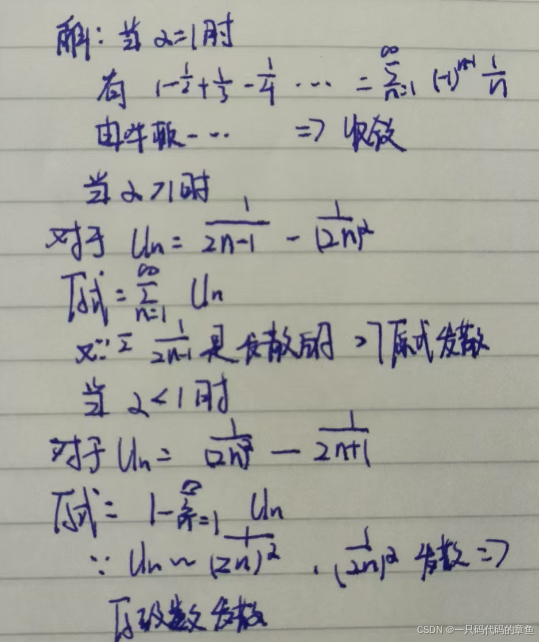 解: 当 α=1 时
有 1-1/2+1/3-1/4 ··· = ∑_{n=1}^{∞} (-1)^{n+1} 1/n
由 ··· => 收敛
当 α>1 时
对于 Un = 1/(2n-1) - 1/(2n)^α
原式 = ∑_{n=1}^{∞} Un
又∵ ∑ 1/(2n-1) 是发散的 => 原式发散
当 α<1 时
对于 Un = 1/(2n)^α - 1/(2n+1)
原式 = 1-∑_{n=1}^{∞} Un
∵ Un ~ 1/(2n)^α , 1/(2n)^α 发散 =>
原级数发散
CSDN @一只码代码的章鱼